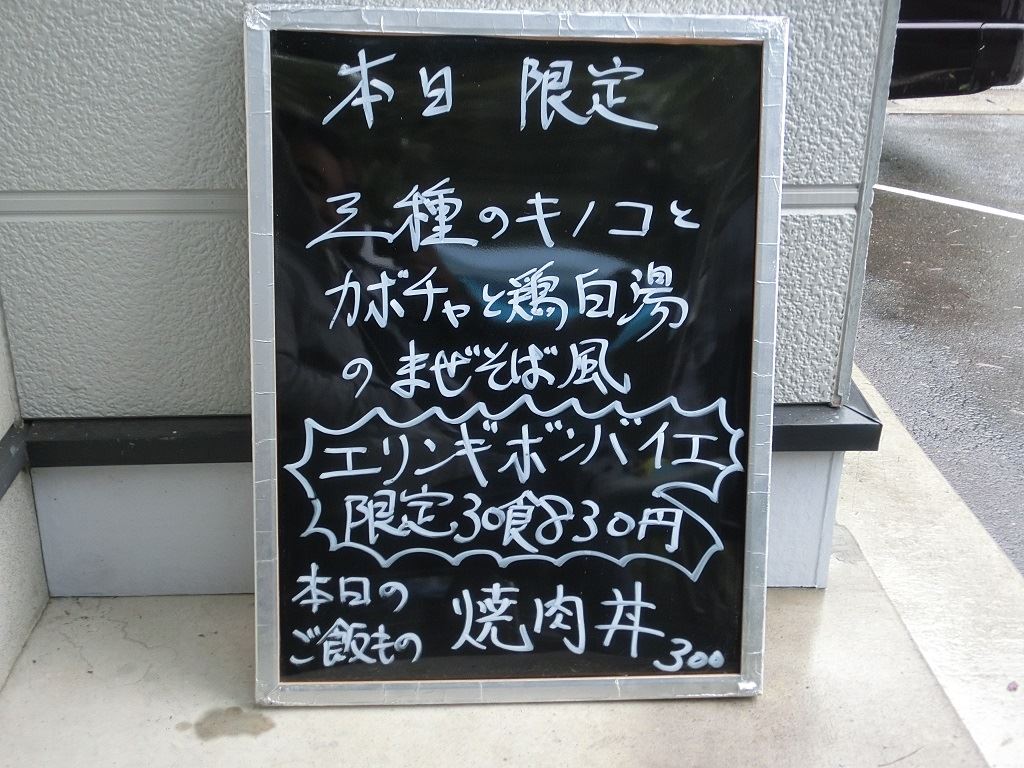 本日 限定
三種のキノコと
カボチャと鶏白湯
のまぜそば風
エリンギボンバイエ
限定30食830円
本日の
ご飯もの
焼肉丼 300